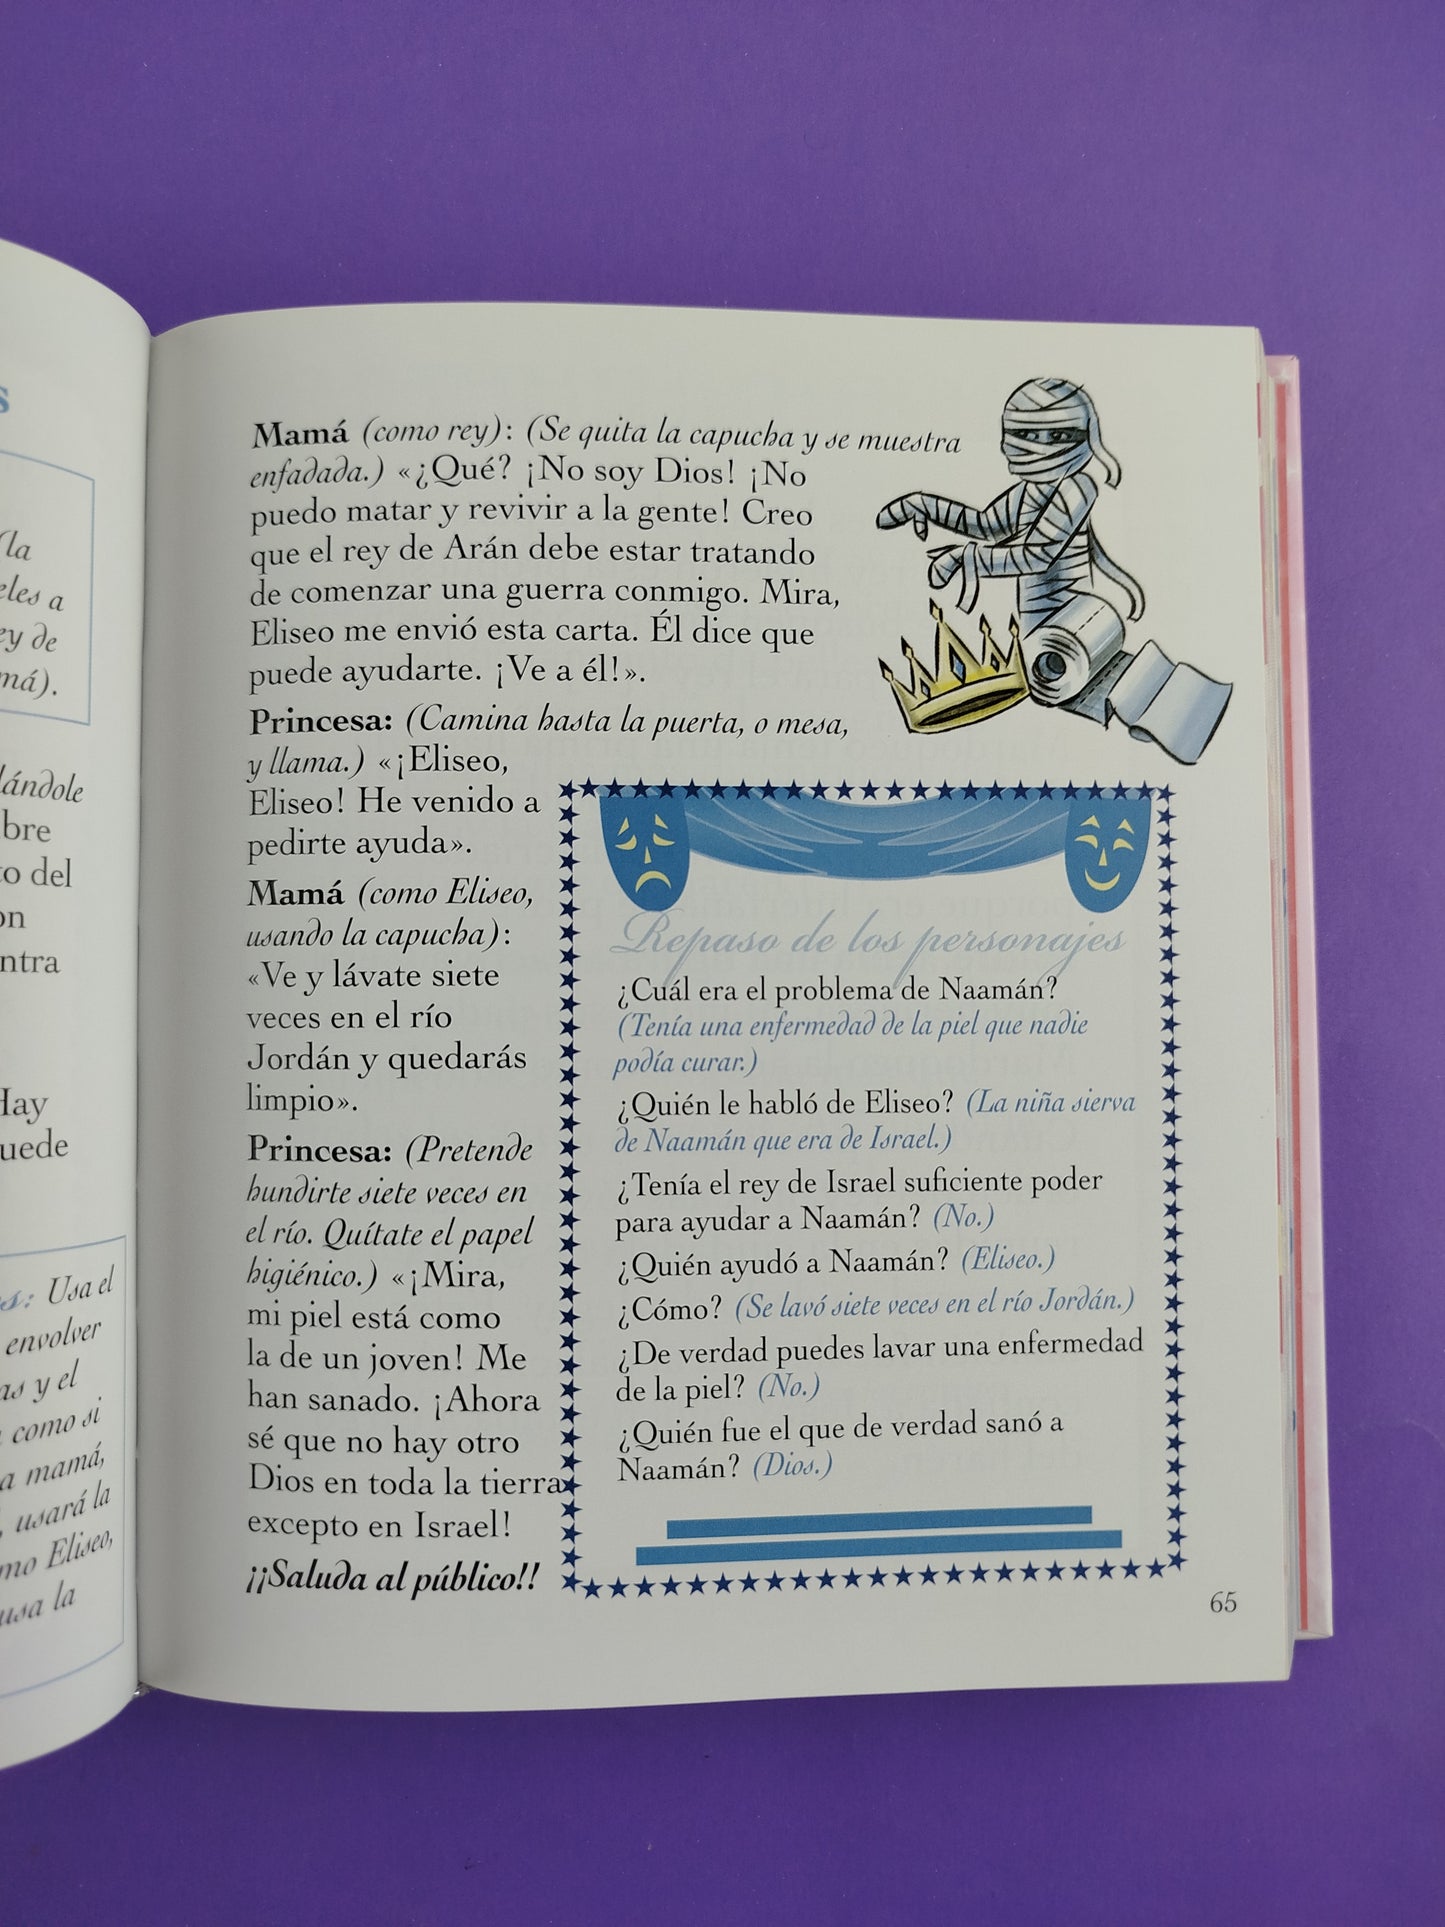 s
(la
eles a
ey de
má).
lándole
bre
to del
on
ntra
Hay
uede
s: Usa el
envolver
as y el
como si
a mamá,
, usará la
mo Eliseo,
usa la
Mamá (como rey): (Se quita la capucha y se muestra
enfadada.) «¿Qué? ¡No soy Dios! ¡No
puedo matar y revivir a la gente! Creo
que el rey de Arán debe estar tratando
de comenzar una guerra conmigo. Mira,
Eliseo me envió esta carta. Él dice que
puede ayudarte. ¡Ve a él!».
Princesa: (Camina hasta la puerta, o mesa,
y llama.) «¡Eliseo,
Eliseo! He venido a
pedirte ayuda».
Mamá (como Eliseo,
usando la capucha):
«Ve y lávate siete
veces en el río
Jordán y quedarás
limpio».
Princesa: (Pretende
hundirte siete veces en
el río. Quítate el papel
higiénico.) «¡Mira,
mi piel está como
la de un joven! Me
han sanado. ¡Ahora
sé que no hay otro
Dios en toda la tierra
excepto en Israel!
¡¡Saluda al público!!
Repaso de los personajes
¿Cuál era el problema de Naamán?
(Tenía una enfermedad de la piel que nadie
podía curar.)
¿Quién le habló de Eliseo? (La niña sierva
de Naamán que era de Israel.)
¿Tenía el rey de Israel suficiente poder
para ayudar a Naamán? (No.)
¿Quién ayudó a Naamán? (Eliseo.)
¿Cómo? (Se lavó siete veces en el río Jordán.)
¿De verdad puedes lavar una enfermedad
de la piel? (No.)
¿Quién fue el que de verdad sanó a
Naamán? (Dios.)
65